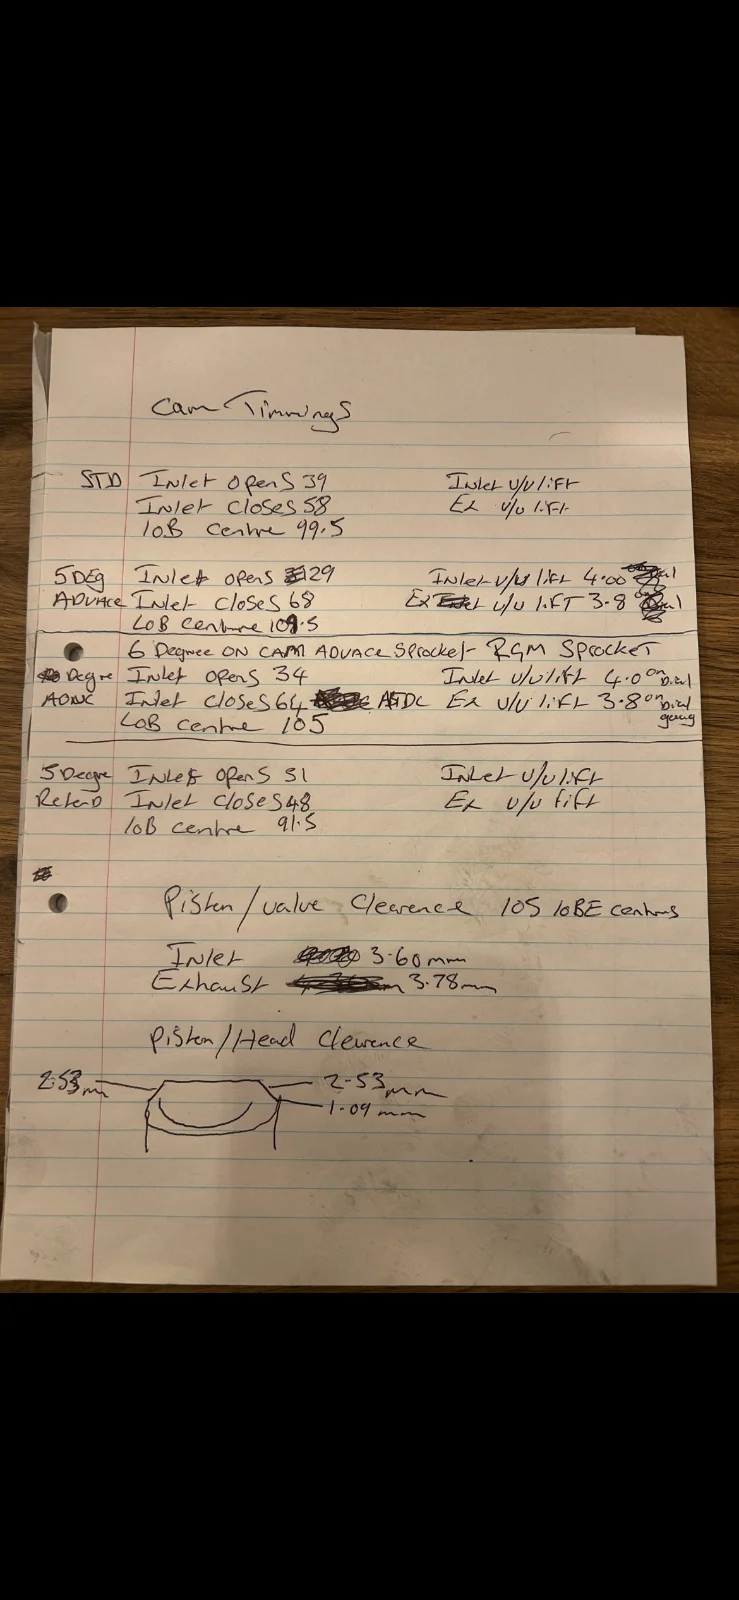 Cam Timmings
STD Inlet opens 39 Inlet v/v lift
Inlet closes 58 Ex v/v lift
loB centre 99.5
5 DEg Inlet opens 29 Inlet v/v lift 4.00
ADVACe Inlet closes 68 Ex v/v lift 3.8
LoB centure 109.5
6 Degree ON CAM ADVACE Sprocket - RGM SPROCKET
Degree Inlet opens 34 Inlet v/v lift 4.0 on Dial
ADNC Inlet closes 64 ATDC Ex v/v lift 3.8 on Dial
LoB centre 105 gaug
5 Degree Inlet opens 51 Inlet v/v lift
RetarD Inlet closes 48 Ex v/v lift
loB centre 91.5
Piston/valve Clearence 105 loBE centrus
Inlet 3.60mm
Exhaust 3.78mm
Piston/Head Clearence
2.53m 2.53mm
1.09 mm